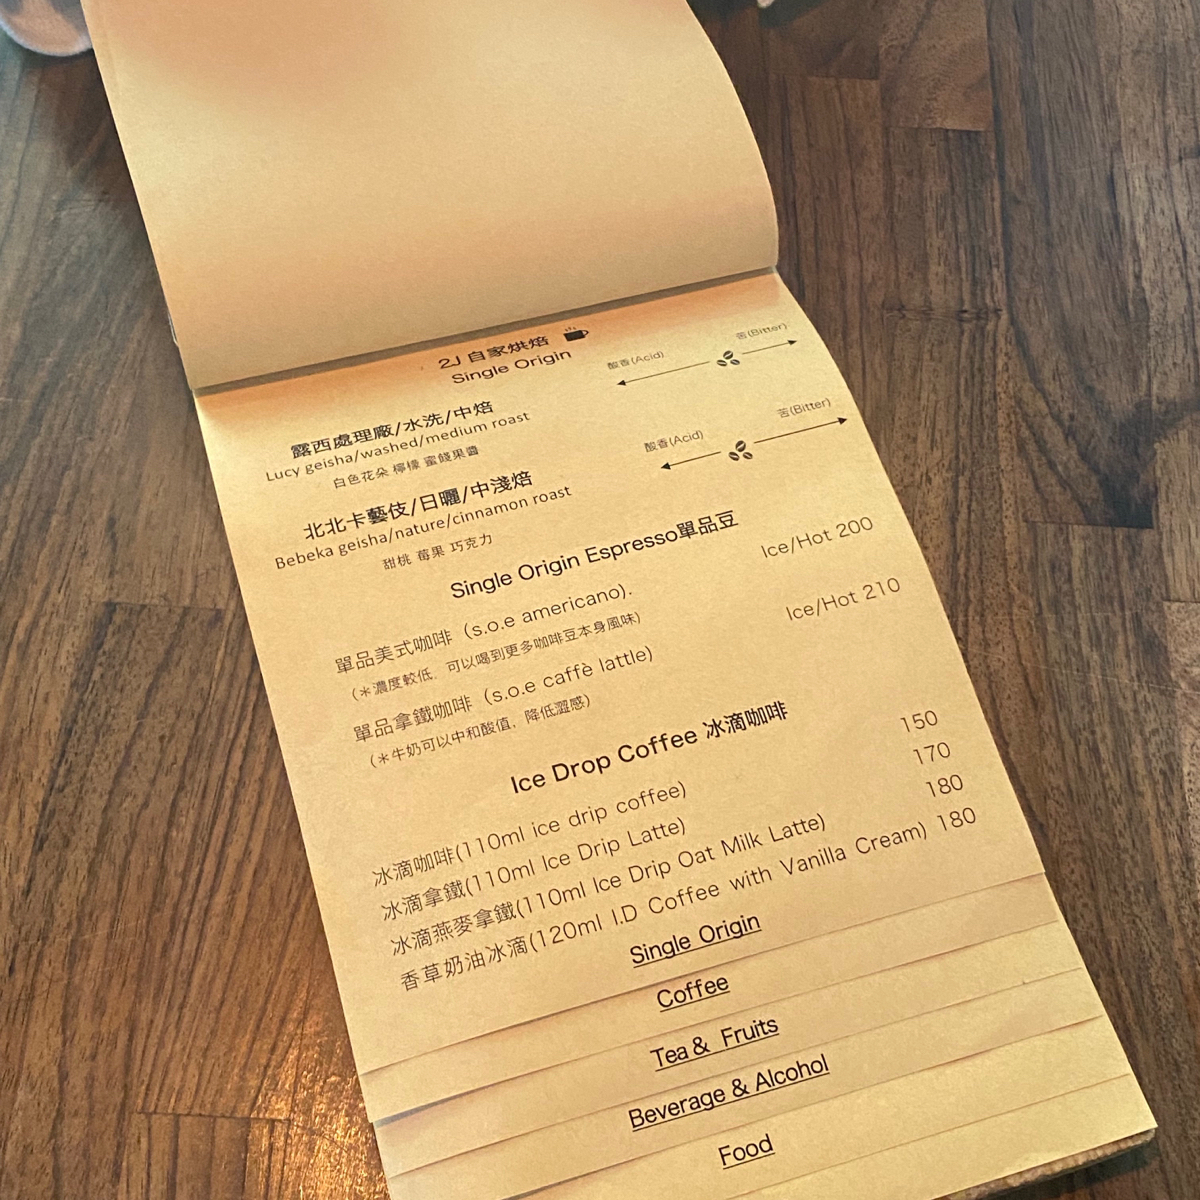 2J 自家烘焙
Single Origin
酸香(Acid) 苦(Bitter)
露西處理廠/水洗/中焙
Lucy geisha/washed/medium roast
白色花朵 檸檬 蜜餞果醬
酸香(Acid) 苦(Bitter)
北北卡藝伎/日曬/中淺焙
Bebeka geisha/nature/cinnamon roast
甜桃 莓果 巧克力
Single Origin Espresso單品豆
單品美式咖啡（s.o.e americano). Ice/Hot 200
(＊濃度較低，可以喝到更多咖啡豆本身風味)
單品拿鐵咖啡（s.o.e caffè lattle) Ice/Hot 210
(＊牛奶可以中和酸值，降低澀感)
Ice Drop Coffee 冰滴咖啡
冰滴咖啡(110ml ice drip coffee) 150
冰滴拿鐵(110ml Ice Drip Latte) 170
冰滴燕麥拿鐵(110ml Ice Drip Oat Milk Latte) 180
香草奶油冰滴(120ml I.D Coffee with Vanilla Cream) 180
Single Origin
Coffee
Tea & Fruits
Beverage & Alcohol
Food